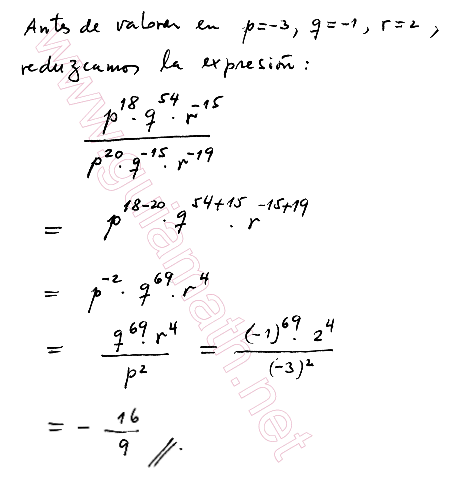 Antes de valorar en p=-3, q=-1, r=2,
reduzcamos la expresión:
p^18 · q^54 · r^-15
p^20 · q^-15 · r^-19
= p^18-20 · q^54+15 · r^-15+19
= p^-2 · q^69 · r^4
= q^69 · r^4 / p^2 = (-1)^69 · 2^4 / (-3)^2
= - 16/9 //.
www.guiamath.net